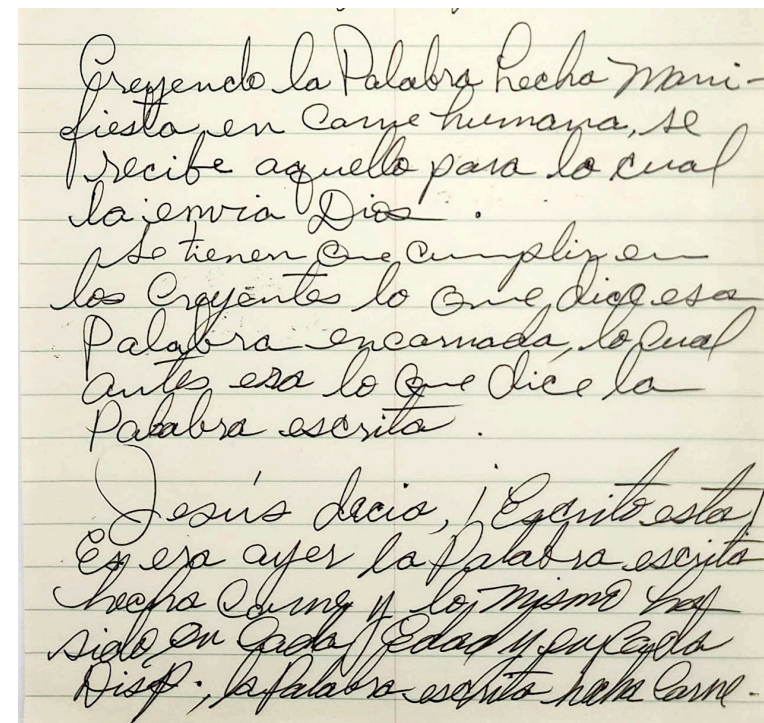 Creyendo la Palabra hecha mani-
fiesta en carne humana, se
recibe aquello para lo cual
la envia Dios.
Se tienen que cumplir en
los Creyentes lo que dice esa
Palabra encarnada, lo cual
antes era lo que dice la
Palabra escrita.
Jesús decia, ¡Escrito esta!
era ayer la Palabra escrita
hecha Carne y lo mismo ha
sido en Cada Edad y en cada
Disp.; la Palabra escrita hecha Carne.